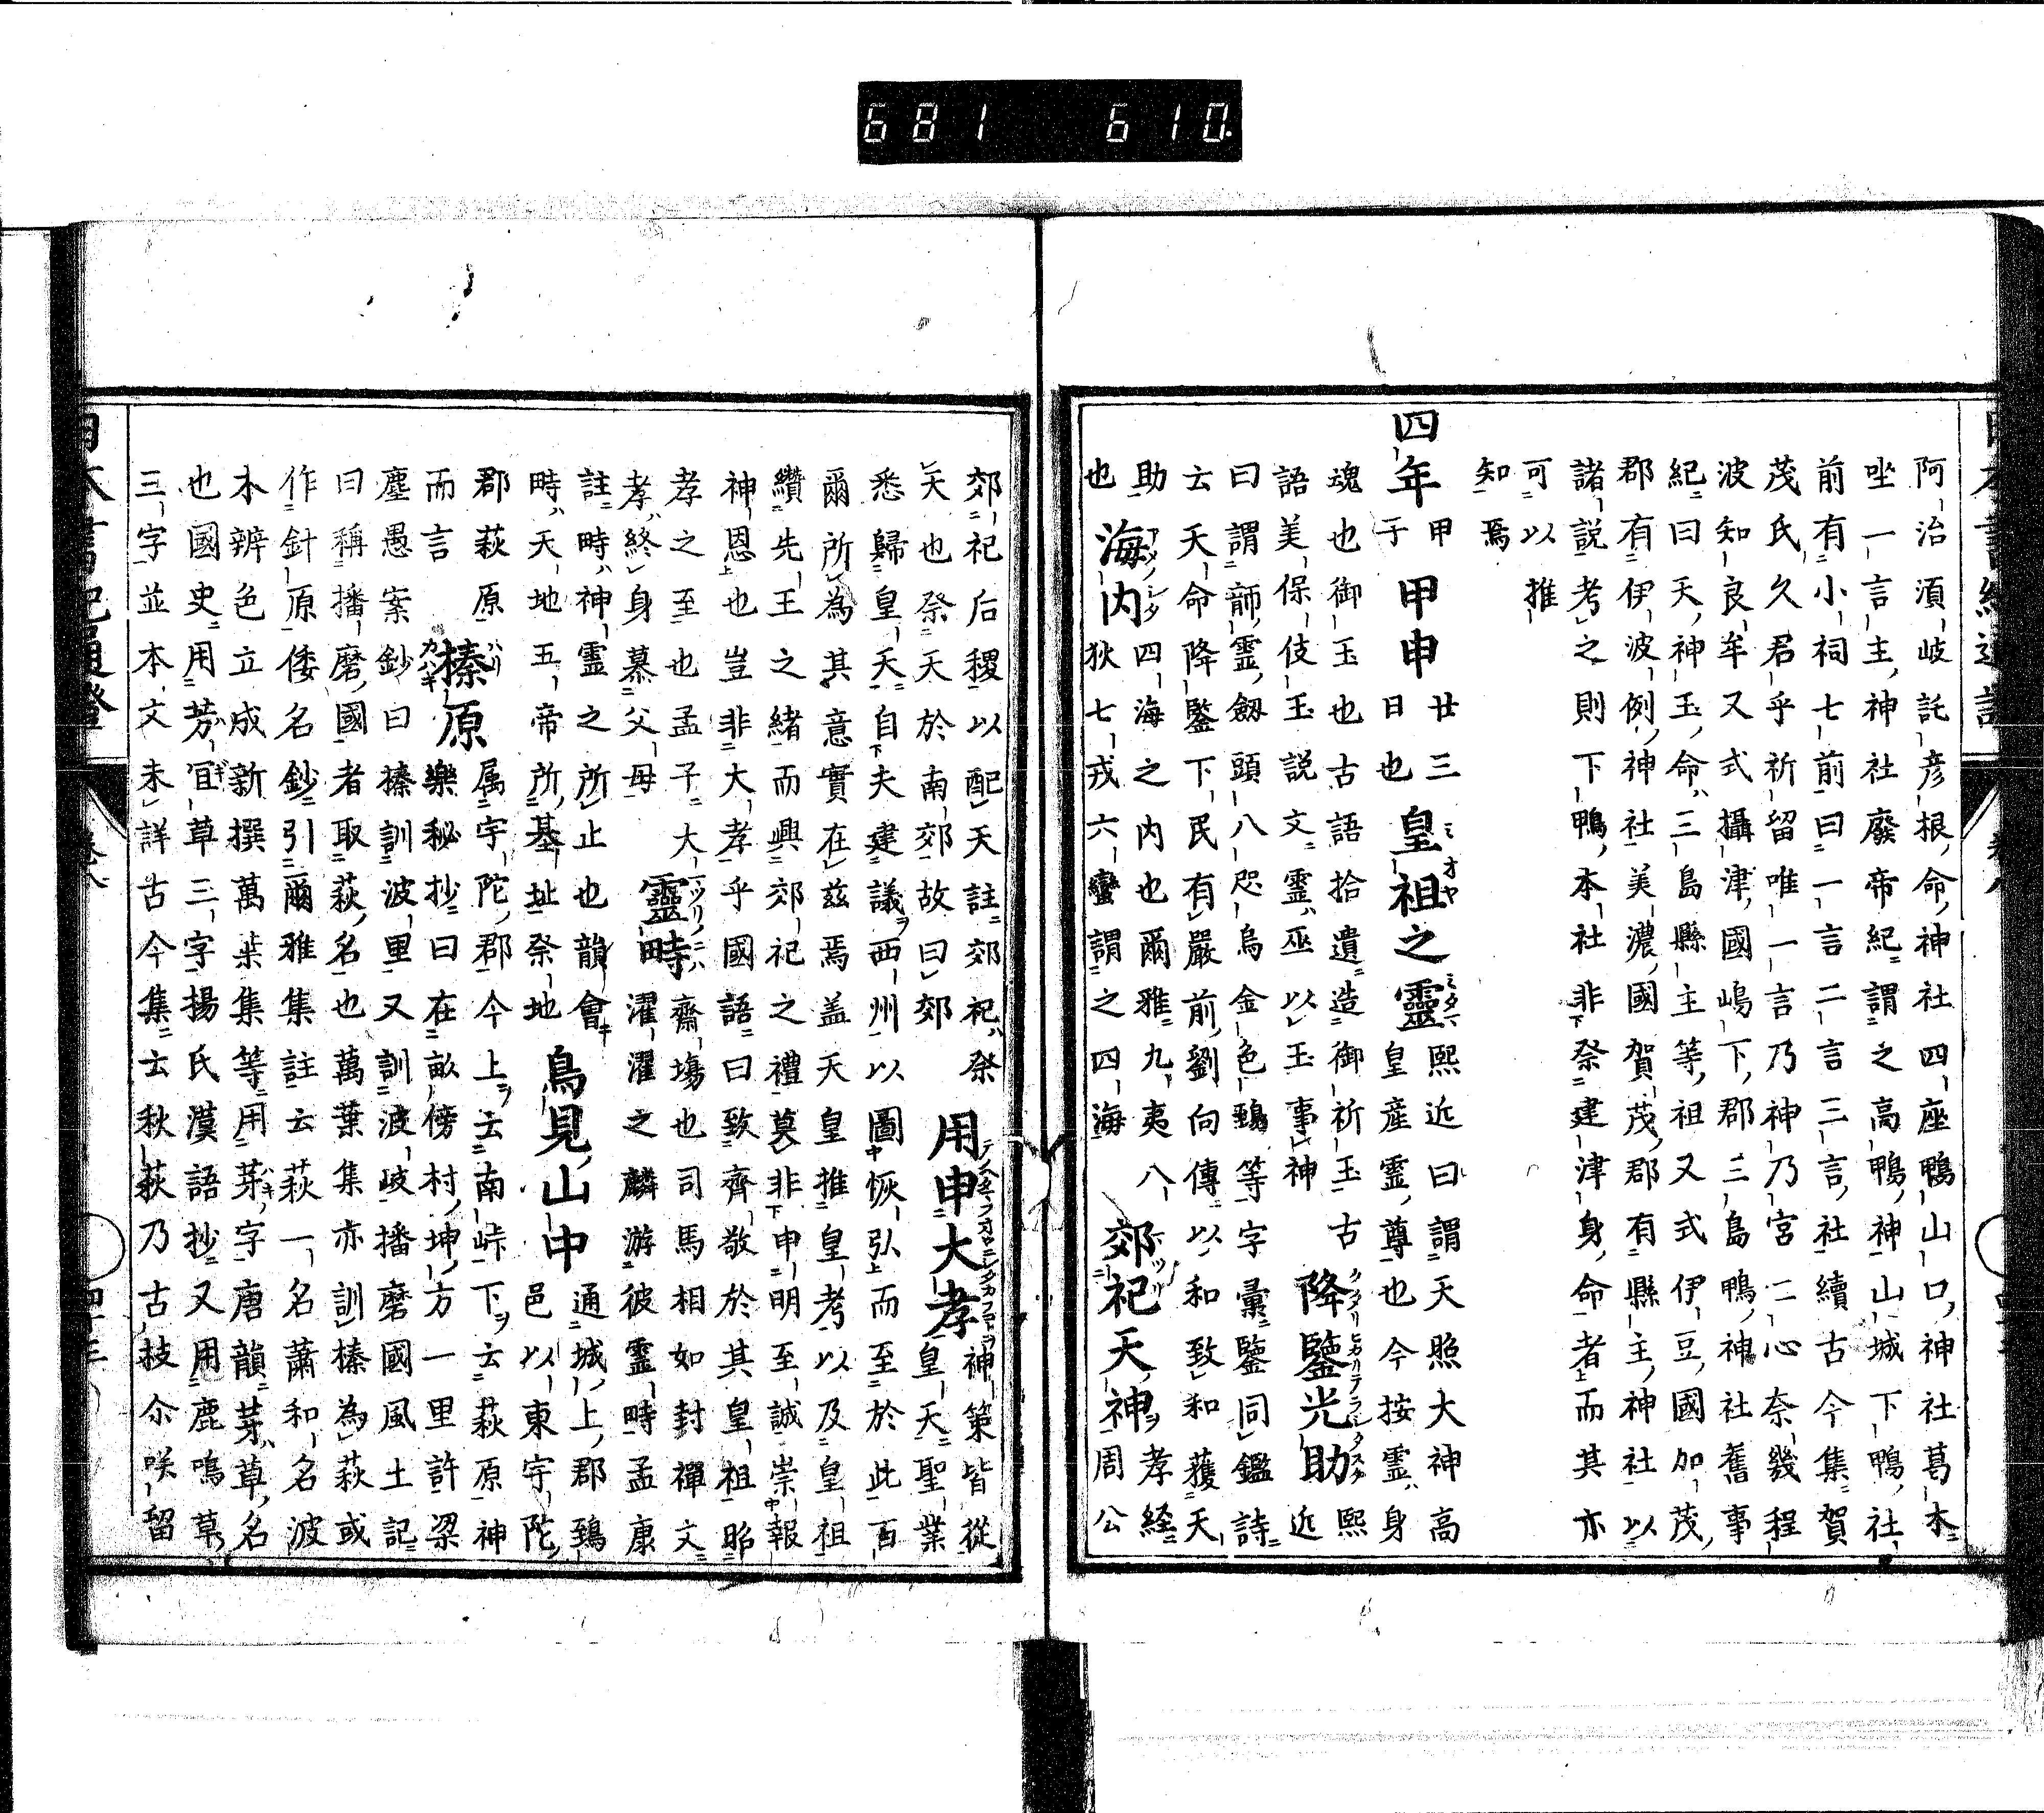 681 610.
阿治須岐託彦根命神社四座鴨山口神社葛木
坐一言主神社廢帝紀謂之高鴨神山城下鴨社
前有小祠七前曰一言二言三言社續古今集賀
茂氏久君乎祈留唯一言乃神乃宮二心奈幾程
波知良牟又式攝津國嶋下郡三島鴨神社舊事
紀曰天神玉命ハ三島縣主等祖又式伊豆國加茂
郡有伊波例神社美濃國賀茂郡有縣主神社以
諸說考之則下鴨本社非祭建津身命者而其亦
可以推
知焉
四年甲于甲申廿三日也皇祖之靈熙近曰謂天照大神高
皇產霊尊也今按霊ハ身
魂也御玉也古語拾遺造御祈玉古
語美保伎玉說文霊ハ巫以玉事神降鑒光助熙近
曰謂韴霊劔頭八咫烏金色鵄等字彙鑒同鑑詩
云天命降鑒下民有嚴前劉向傳以和致和獲天
助海内四海之内也爾雅九夷八
狄七戎六蠻謂之四海郊祀天神孝経周公
也
郊祀后稷以配天註郊祀ハ祭
天也祭天於南郊故曰郊用申大孝神策皆從
皇天聖業
悉歸皇天自夫建議西州以圖恢弘而至於此百
爾所為其意實在茲焉盖天皇推皇考以及皇祖
纘先王之緒而興郊祀之禮莫非申明至誠崇報
神恩也豈非大孝乎國語曰致齊敬於其皇祖昭
孝之至也孟子大
孝ハ終身慕父母靈畤齋場也司馬相如封禪文
濯濯之麟游彼霊畤孟康
註畤ハ神霊之所止也韻會
畤ハ天地五帝所基址祭地鳥見山中通城上郡鵄
邑以東宇陀
郡萩原榛原属宇陀郡今上ヲ云南峠下ヲ云萩原神
樂秘抄曰在畝傍村坤方一里許梁
而言
塵愚案鈔曰榛訓波里又訓波岐播磨國風土記
曰稱播磨國者取萩名也萬葉集亦訓榛為萩或
作針原倭名鈔引爾雅集註云萩一名蕭和名波
木辨色立成新撰萬葉集等用芽字唐韻芽ハ草名
也國史用芳宜草三字揚氏漢語抄又用鹿鳴草
三字並本文未詳古今集云秋萩乃古技尓咲留